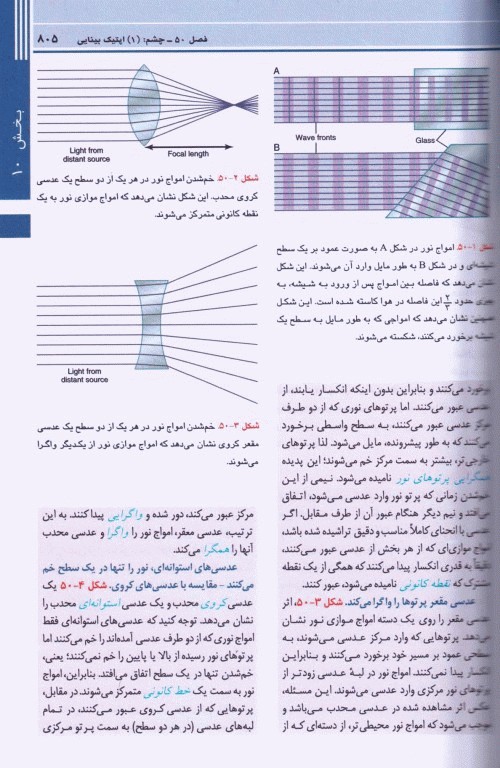 فصل ۵۰ ـ چشم: (۱) اپتیک بینایی
۸۰۵
بخش ۱۰
A
Wave fronts
Glass
B
شکل ۱-۵۰. امواج نور در شکل A به صورت عمود بر یک سطح
شیشه‌ای و در شکل B به طور مایل وارد آن می‌شوند. این شکل
نشان می‌دهد که فاصله بین امواج پس از ورود به شیشه، به
حدود ۲/۳ این فاصله در هوا کاسته شده است. این شکل
همچنین نشان می‌دهد که امواجی که به طور مایل به سطح یک
شیشه برخورد می‌کنند، شکسته می‌شوند.
برخورد می‌کنند و بنابراین بدون اینکه انکسار یابند، از
عدسی عبور می‌کنند. اما پرتوهای نوری که از دو طرف
مرکز عدسی عبور می‌کنند، به سطح واسطی برخورد
می‌کنند که به طور پیشرونده، مایل می‌شود. لذا پرتوهای
خارجی‌تر، بیشتر به سمت مرکز خم می‌شوند؛ این پدیده
همگرایی پرتوهای نور نامیده می‌شود. نیمی از این
خم‌شدن زمانی که پرتو نور وارد عدسی می‌شود، اتفاق
می‌افتد و نیم دیگر هنگام عبور آن از طرف مقابل. اگر
عدسی با انحنای کاملاً مناسب و دقیق تراشیده شده باشد،
امواج موازی‌ای که از هر بخش از عدسی عبور می‌کنند،
دقیقاً به قدری انکسار پیدا می‌کنند که همگی از یک نقطه
مشترک که نقطه کانونی نامیده می‌شود، عبور کنند.
عدسی مقعر پرتوها را واگرا می‌کند. شکل ۳-۵۰، اثر
عدسی مقعر را روی یک دسته امواج موازی نور نشان
می‌دهد. پرتوهایی که وارد مرکز عدسی می‌شوند، به
سطحی عمود بر مسیر خود برخورد می‌کنند و بنابراین
انکسار پیدا نمی‌کنند. امواج نور در لبهٔ عدسی زودتر از
پرتوهای نور مرکزی وارد عدسی می‌شوند. این مسئله،
عکس اثر مشاهده شده در عدسی محدب می‌باشد و
موجب می‌شود که امواج نور محیطی‌تر، از دسته‌ای که از
Light from
distant source
Focal length
شکل ۲-۵۰. خم‌شدن امواج نور در هر یک از دو سطح یک عدسی
کروی محدب. این شکل نشان می‌دهد که امواج موازی نور به یک
نقطه کانونی متمرکز می‌شوند.
Light from
distant source
شکل ۳-۵۰. خم‌شدن امواج نور در هر یک از دو سطح یک عدسی
مقعر کروی نشان می‌دهد که امواج موازی نور از یکدیگر واگرا
می‌شوند.
مرکز عبور می‌کند، دور شده و واگرایی پیدا کنند. به این
ترتیب، عدسی معقر، امواج نور را واگرا و عدسی محدب
آنها را همگرا می‌کند.
عدسی‌های استوانه‌ای، نور را تنها در یک سطح خم
می‌کنند - مقایسه با عدسی‌های کروی. شکل ۴-۵۰ یک
عدسی کروی محدب و یک عدسی استوانه‌ای محدب را
نشان می‌دهد. توجه کنید که عدسی‌های استوانه‌ای فقط
امواج نوری که از دو طرف عدسی آمده‌اند را خم می‌کنند اما
پرتوهای نور رسیده از بالا یا پایین را خم نمی‌کنند؛ یعنی،
خم‌شدن تنها در یک سطح اتفاق می‌افتد. بنابراین، امواج
نور به سمت یک خط کانونی متمرکز می‌شوند. در مقابل،
پرتوهایی که از عدسی کروی عبور می‌کنند، در تمام
لبه‌های عدسی (در هر دو سطح) به سمت پرتو مرکزی